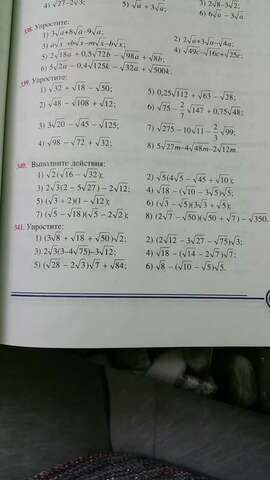 4) √27-2√3; 5) √a + 3√a; 3) 2√8-3√2;
6) 6√a – 3√a
338. Упростите:
1) 3√a+8√a-9√a; 2) 2√a+3√a-√4a;
3) a√x +b√x-m√x-b√x; 4) √49c-√16c+√25c;
5) 2√18a + 0,5√72b – √98a + √8b;
6) 5√2a – 0,4√125k – √32a + √500k.
339. Упростите:
1) √32 + √18 – √50; 5) 0,25√112 +√63 – √28;
2) √48 – √108 + √12; 6) √75 – 2/7 √147 + 0,75√48;
3) 3√20 – √45 – √125; 7) √275 – 10√11 – 2/3 √99;
4) √98 – √72 + √32; 8) 5√27m-4√48m-2√12m.
340. Выполните действия:
1) √2(√16 – √32); 2) √5(4√5 –√45 + √10);
3) 2√3(2 – 5√27) – 2√12; 4) √18 – (√10 – 3√5)√5;
5) (√3 + 2)(1 – √12); 6) (√3 – √5)(3√3 + √5);
7) (√5 – √18)(√5 – 2√2); 8) (2√7 –√50)(√50 +√7) – √350.
341. Упростите:
1) (3√8 + √18 + √50)√2; 2) (2√12 – 3√27 – √75)√3;
3) 2√3(3–4√75)–3√12; 4) √18 – (√14 – 2√7)√7;
5) (√28 – 2√3)√7 + √84; 6) √8 – (√10 – √5)√5.